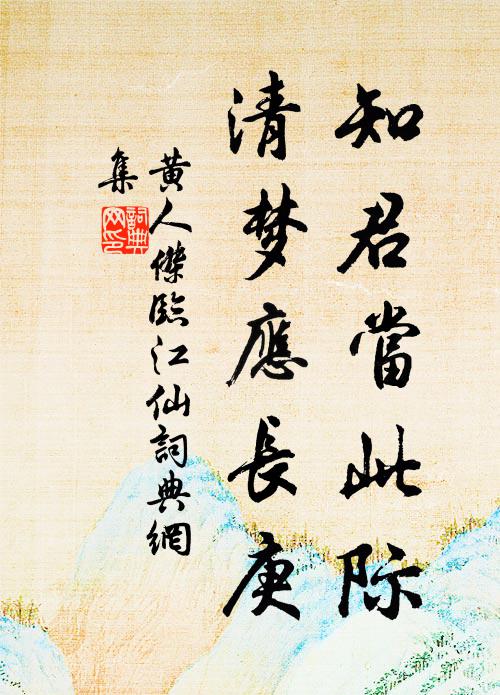 知君當此际
清梦應長庚
黄人傑臨江仙詞典網
集
詞典
网印